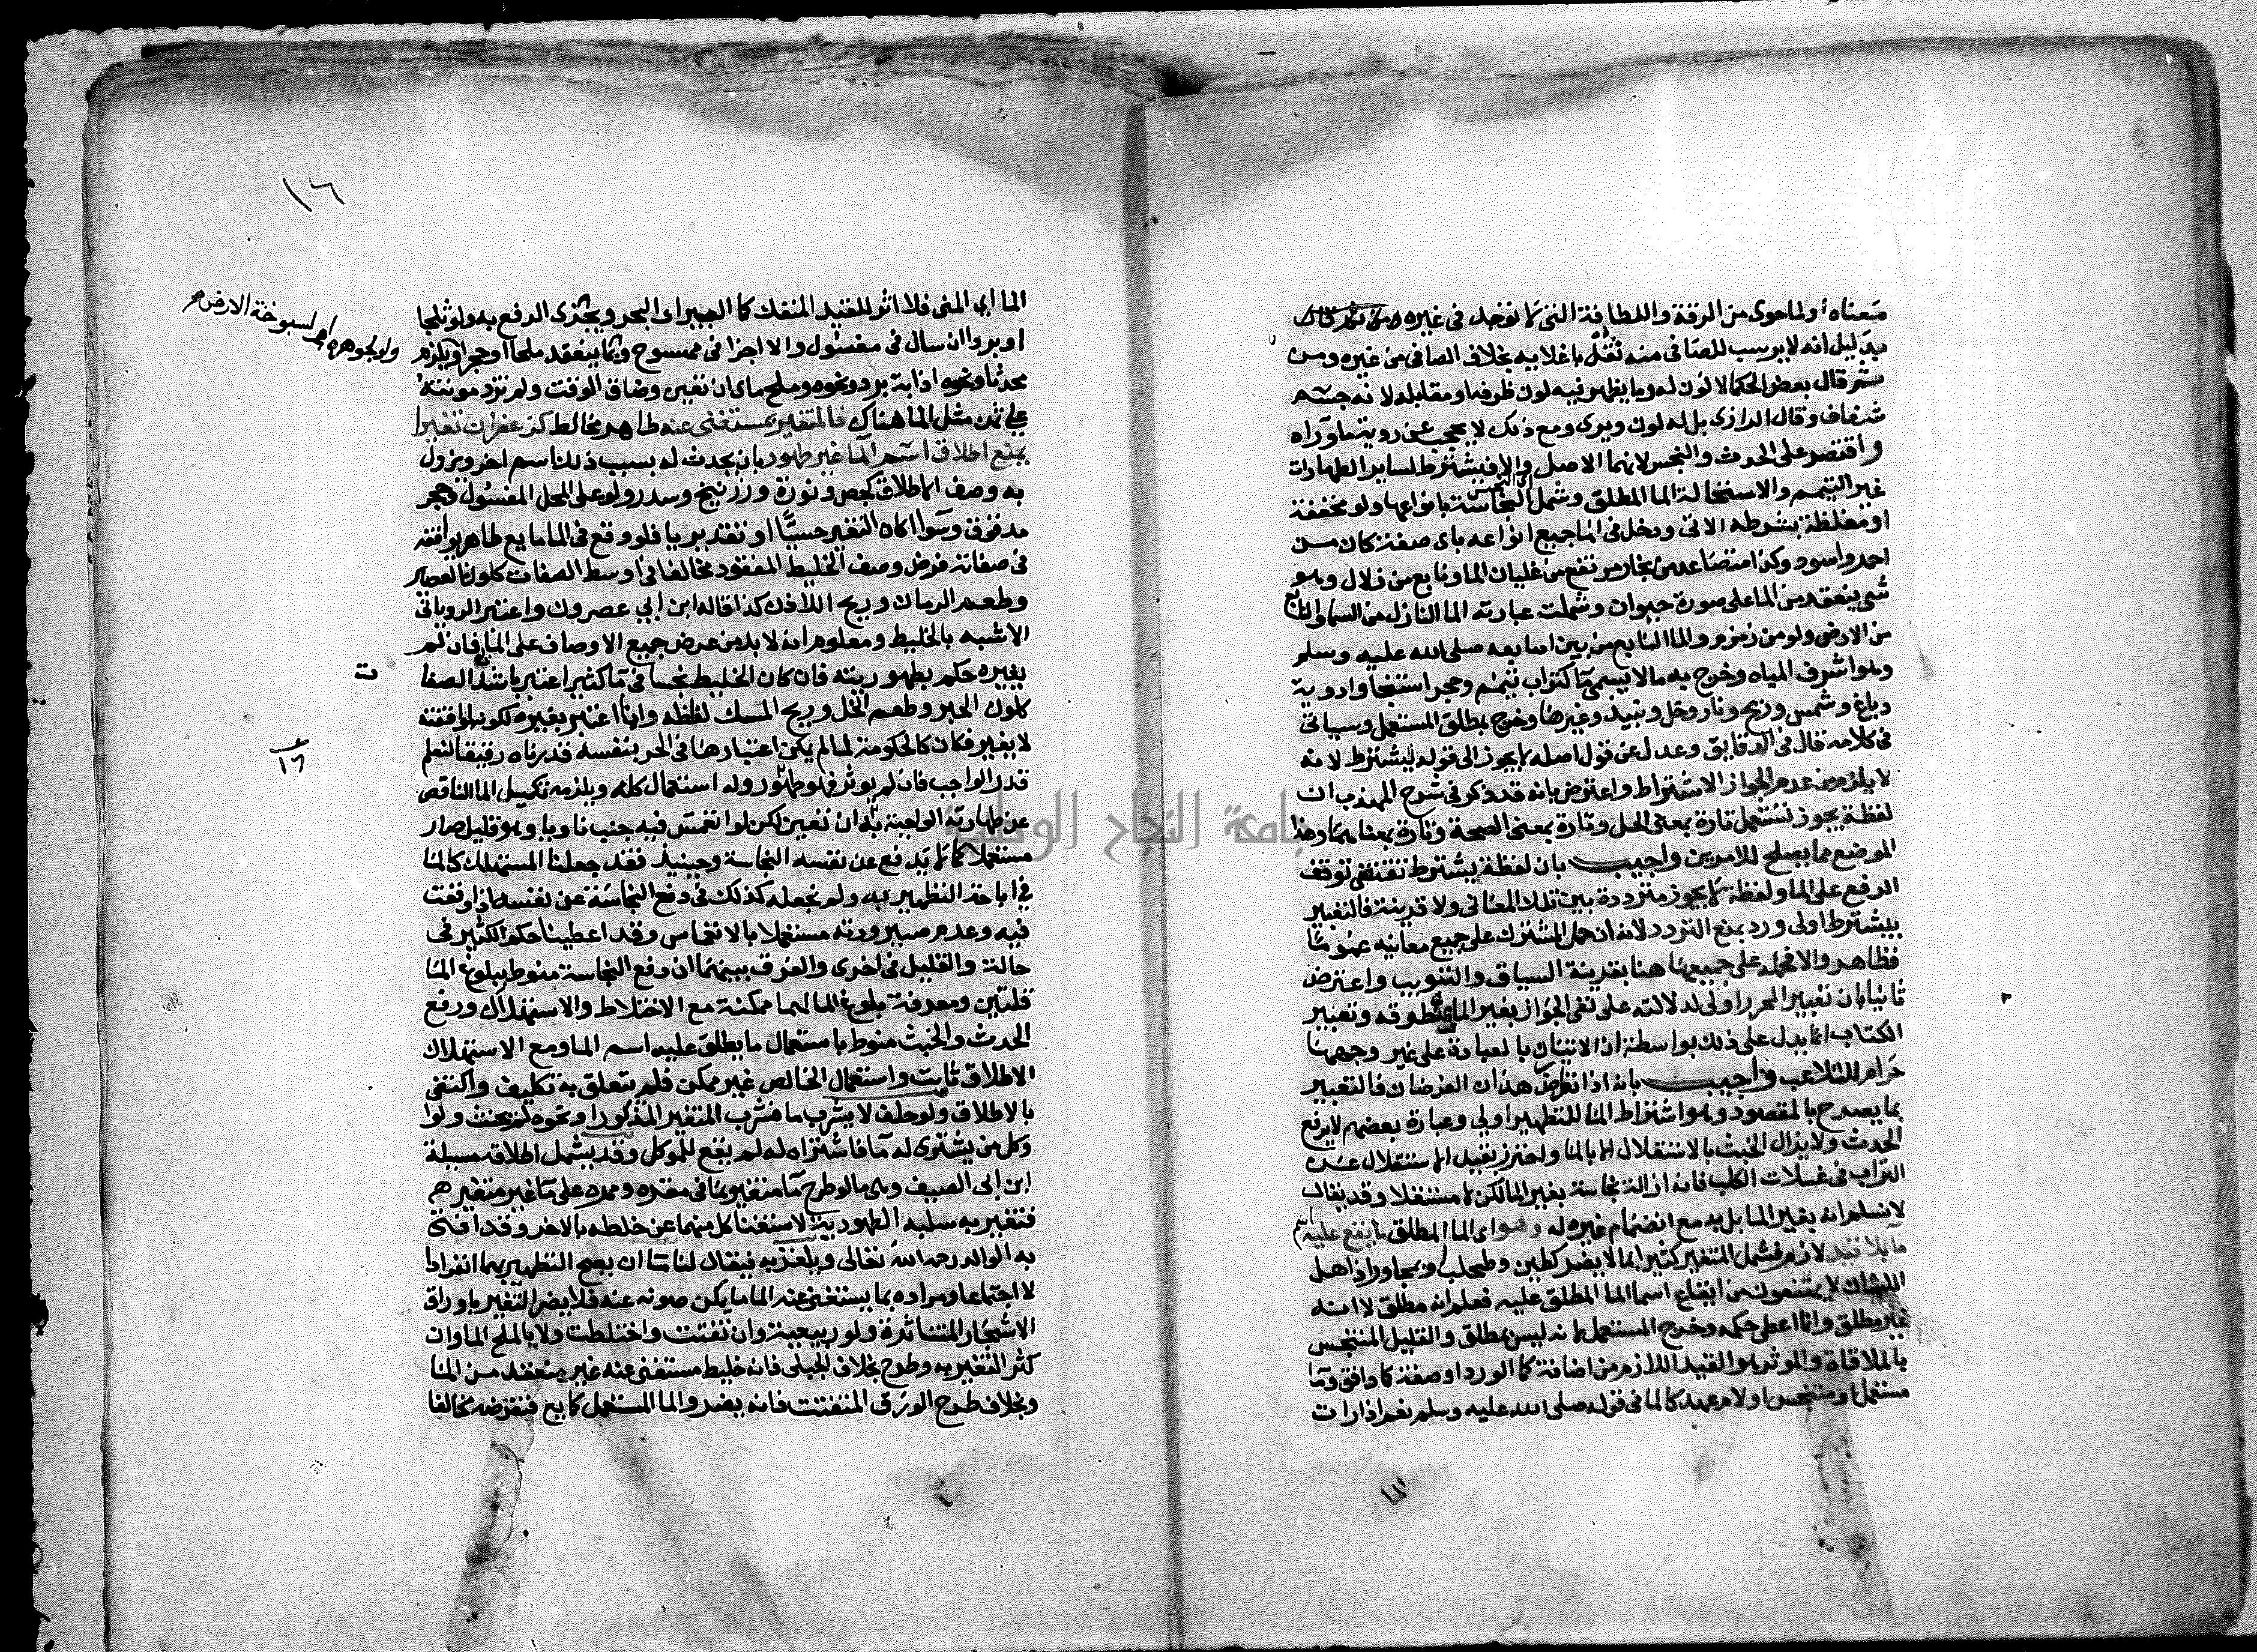 معناه أو لما حوى من الرقة واللطافة التي لا توجد في غيره ومن ثم قال
بدليل انه لا يرسب للصافي منه ثقل باغلايه بخلاف الصافي من غيره ومن
ثم قال بعض الحكما لا لون له وما يظهر فيه لون ظرفه او مقابله لانه جسم
شفاف وقال الرازى بل له لون ويرى ومع ذلك لا يحجب عن روية ما ورآه
واقتصر على الحدث والنجس لانهما الاصل والا فيشترط لساير الطهارات
غير التيمم والاستحالة الما المطلق وشمل النجاسة بانواعها ولو مخففة
او مغلظة بشرطه الاتى ودخل في الما جميع انواعه باى صفة كان من
احمر واسود وكذا متصاعد من بخار مرتفع من غليان الما ونابع من زلال وهو
شي ينعقد من الما على صورة حيوان وشملت عبارته الما النازل من السما والنابع
من الارض ولو من زمزم والما النابع من بين اصابعه صلى الله عليه وسلم
وهو اشرف المياه وخرج به ما لا يسمى ما كتراب تيمم وحجر استنجا وادوية
دباغ وشمس وريح ونار وخل ونبيذ وغيرها وخرج بمطلق المستعمل وسياتى
في كلامه قال في الدقايق وعدل عن قول اصله لا يجوز الى قوله يشترط لانه
لا يلزم من عدم الجواز الاشتراط واعترض بانه قد ذكر في شرح المهذب ان
لفظة يجوز تستعمل تارة بمعنى الحل وتارة بمعنى الصحة وتارة بمعناهما وهذا
الموضع مما يصلح للامرين واجيب بان لفظة يشترط تقتضي توقف
الرفع على الما ولفظة لا يجوز مترددة بين تلك المعانى ولا قرينة فالتعبير
بيشترط اولى ورد بمنع التردد لانه ان حمل المشترك على جميع معانيه عموما
فظاهر والا فحمله على جميعها هنا بقرينة السياق والتبويب واعترض
ثانيا بان تعبير المحرر اولى لدلالته على نفى الجواز بغير الما بمنطوقه وتعبير
الكتاب انما يدل على ذلك بواسطة ان الاتيان بالعبادة على غير وجهها
حرام للتلاعب واجيب بانه اذا تعارض هذان الغرضان فالتعبير
بما يصرح بالمقصود وهو اشتراط الما للتطهير اولى وعبارة بعضهم لا يرفع
الحدث ولا يزال الخبث بالاستقلال الا بالما واحترز بقيد الاستقلال عن
التراب في غسلات الكلب فانه ازالة نجاسة بغير الما لكن لا مستقلا وقد يقال
لا نسلم انه بغير الما بل به مع انضمام غيره له وهو اى الما المطلق ما يقع عليه اسم
ما بلا قيد لازم فشمل المتغير كثيرا بما لا يضر كطين وطحلب ومجاور اذ اهل
اللسان لا يمتنعون من ايقاع اسم الما المطلق عليه فعلم انه مطلق لا انه
غير مطلق وانما اعطى حكمه وخرج المستعمل لانه ليس بمطلق والقليل المتنجس
بالملاقاة والموثر هو القيد اللازم من اضافة كما الورد او صفة كما دافق وما
مستعمل او متنجس او لام عهد كالما في قوله صلى الله عليه وسلم نعم اذا رات
١٦
الما اى المنى فلا اثر للمقيد المنفك كما البير او البحر ويجزى الرفع به ولو ثلجا
او بردا ان سال في مغسول والا اجزا في ممسوح وبما ينعقد ملحا او حجرا ويلزم
ولو لجوهره ام لسبوخة الارض صح
محدثا ونحوه اذابة برد ونحوه وملح ماى ان تعين وضاق الوقت ولم تزد مونته
على ثمن مثل الما هناك فالمتغير بمستغنى عنه طاهر مخالط كزعفران تغيرا
يمنع اطلاق اسم الما غير طهور بان يحدث له بسبب ذلك اسم اخر ويزول
به وصف الاطلاق كجص ونورة وزرنيخ وسدر ولو على المحل المغسول وحجر
مدقوق وسوا اكان التغير حسيا او تقديريا فلو وقع في الما مايع طاهر يوافقه
في صفاته فرض وصف الخليط المفقود مخالفا في اوسط الصفات كلون العصير
وطعم الرمان وريح اللاذن كذا قاله ابن ابي عصرون واعتبر الروياني
الاشبه بالخليط ومعلوم انه لا بد من عرض جميع الاوصاف على الما فان لم
يغيره حكم بطهوريته فان كان الخليط نجسا في ما كثير اعتبر باشد الصفا
ت
كلون الحبر وطعم الخل وريح المسك لغلظه وانما اعتبر بغيره لكونه لموافقته
لا يغير فكان كالحكومة لما لم يكن اعتبارها في الحر بنفسه قدرناه رقيقا لنعلم
قدر الواجب فان لم يوثر فهو طهور وله استعمال كله ويلزمه تكميل الما الناقص
عن طهارته الواجبة به ان تعين لكن لو انغمس فيه جنب ناويا وهو قليل صار
مستعملا كما لا يدفع عن نفسه النجاسة وحينيذ فقد جعلنا المستهلك كالما
في اباحة التطهير به ولم نجعله كذلك في دفع النجاسة عن نفسه اذا وقعت
فيه وعدم صيرورته مستعملا بالانغماس وقد اعطينا حكم الكثير في
حالة والقليل في اخرى والفرق بينهما ان دفع النجاسة منوط ببلوغ الما
قلتين ومعرفة بلوغ الما لهما ممكنة مع الاختلاط والاستهلاك ورفع
الحدث والخبث منوط باستعمال ما يطلق عليه اسم الما ومع الاستهلاك
الاطلاق ثابت واستعمال الخالص غير ممكن فلم يتعلق به تكليف واكتفى
بالاطلاق ولو حلف لا يشرب ما فشرب المتغير المذكور او نحوه لم يحنث ولو
وكل من يشترى له ما فاشتراه له لم يقع للموكل وقد يشمل اطلاقه مسيلة
ابن ابى الصيف وهى ما لو طرح ما متغير بما في مقره وممره على ما غير متغير
فتغير به سلبه الطهورية لاستغنا كل منهما عن خلطه بالاخر وقد افتى
به الوالد رحمه الله تعالى ويلغز به فيقال لنا ماآن يصح التطهير بهما انفرادا
لا اجتماعا ومراده بما يستغنى عنه الما ما يمكن صونه عنه فلا يضر التغير باوراق
الاشجار المتناثرة ولو ربيعية وان تفتتت واختلطت ولا بالملح الماى وان
كثر التغير به وطرح بخلاف الجبلى فانه خليط مستغنى عنه غير منعقد من الما
وبخلاف طرح الورق المتفتت فانه يضر والما المستعمل كمايع فنفرضه مخالفا